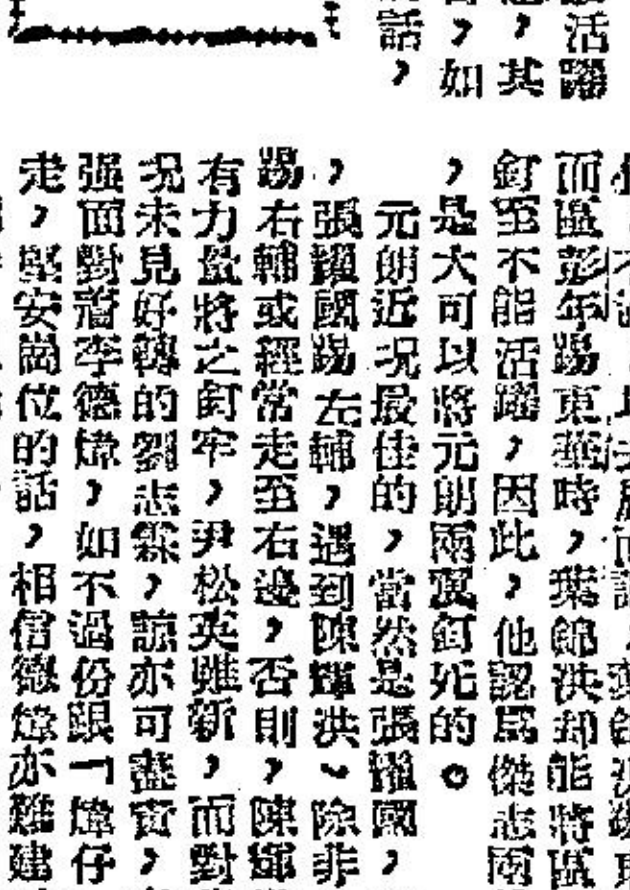 活躍
其
，如
話，
而區彭年踢東華時，葉錦洪却能將區
釘至不能活躍，因此，他認爲傑志兩
，是大可以將元朗兩翼釘死的。
元朗近況最佳的，當然是張耀國，
，張耀國踢左輔，遇到陳輝洪、除非
踢右輔或經常走至右邊，否則，陳輝
有力量將之釘牢，尹松英雖新，而對
況未見好轉的劉志霖，諒亦可盡責，
强面對着李德煒，如不過份跟「煒仔
走，堅安崗位的話，相信德煒亦難建